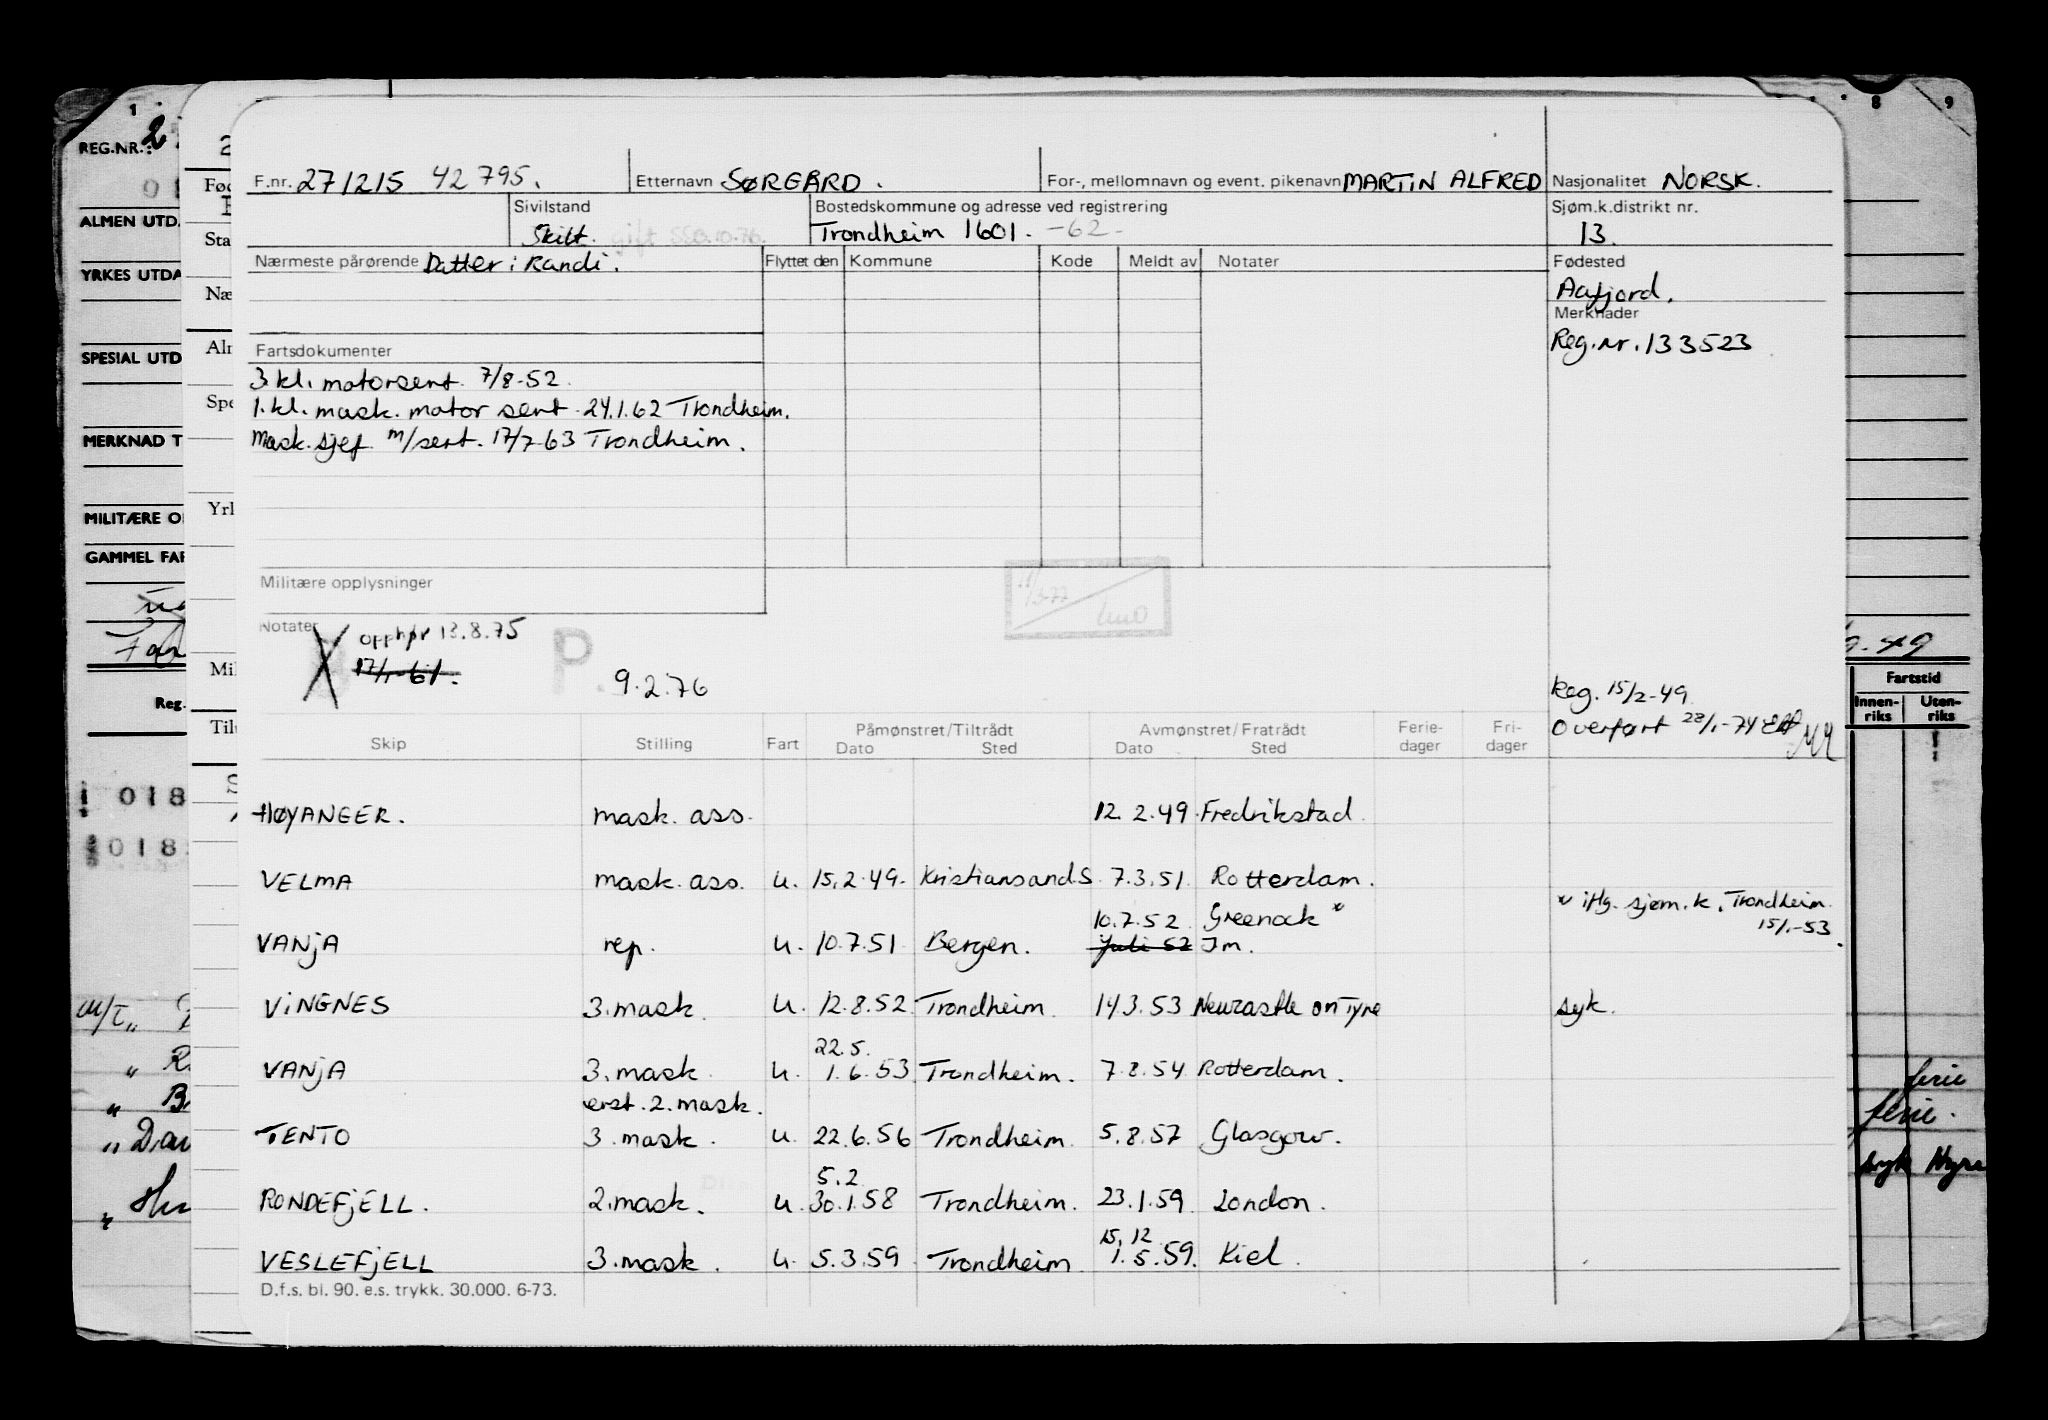 1 8 9
REG.NR.: 2
ALMEN UTD.
YRKES UTDA
SPESIAL UTD
MERKNAD T
MILITÆRE O
GAMMEL FAR
Reg.
018
018
Fød
Sta
Næ
Alr
Spe
Yrk
Mil
F.nr. 271215 42795. Etternavn SØRGÅRD. For-, mellomnavn og event. pikenavn MARTIN ALFRED Nasjonalitet NORSK.
Sivilstand Bostedskommune og adresse ved registrering Sjøm.k.distrikt nr.
Skilt. gift SSØ.10.76. Trondheim 1601. -62- 13.
Nærmeste pårørende Datter: Randi. Flyttet den Kommune Kode Meldt av Notater Fødested
Aafjord.
Merknader
Fartsdokumenter Reg.nr. 133523
3.kl. motorsert. 7/8-52.
1.kl. mask. motor sert. 24.1.62 Trondheim.
Mask.sjef m/sert. 17/7-63 Trondheim.
Militære opplysninger
Notater
X opphør 13.8.75 P.
17/1-61.
9.2.76
Reg. 15/2-49
Overført 28/1-74
Skip Stilling Fart Påmønstret/Tiltrådt Avmønstret/Fratrådt Ferie-dager Fri-dager
Dato Sted Dato Sted
HØYANGER. mask. ass. 12.2.49 Fredrikstad.
VELMA mask. ass. u. 15.2.49. Kristiansand S 7.3.51. Rotterdam.
10.7.52 Greenock * * iflg. sjøm.k. Trondheim
15/1-53.
VANJA rep. u. 10.7.51. Bergen. juli 52 Jm.
VINGNES 3.mask. u. 12.8.52. Trondheim. 14.3.53 Newcastle on Tyne syk.
22.5.
VANJA 3.mask. u. 1.6.53. Trondheim. 7.8.54 Rotterdam.
erst. 2. mask.
TENTO 3.mask. u. 22.6.56 Trondheim. 5.8.57 Glasgow.
5.2
RONDEFJELL. 2.mask. u. 30.1.58 Trondheim. 23.1.59. London.
15.12
VESLEFJELL 3.mask. u. 5.3.59 Trondheim 1.5.59. Kiel.
D.f.s. bl. 90. e.s. trykk. 30.000. 6-73.
Fartstid
Innen-riks Uten-riks
ferie
ferie.
syk Hyre